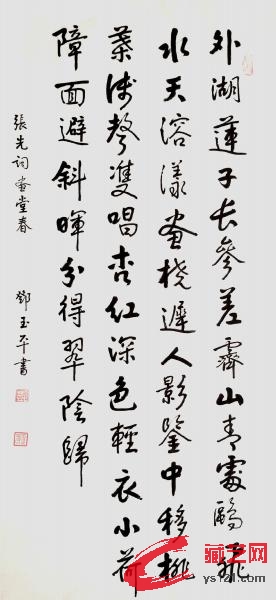 外湖蓮子長參差霽山青處鷗飛
水天溶漾畫橈遲人影鑒中移桃
葉淺聲雙唱杏紅深色輕衣小荷
障面避斜暉分得翠陰歸
張先詞畫堂春 鄧玉平書